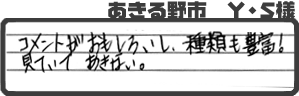 あきる野市　Y・S様
コメントがおもしろいし、種類も豊富！
見ていて あきない。